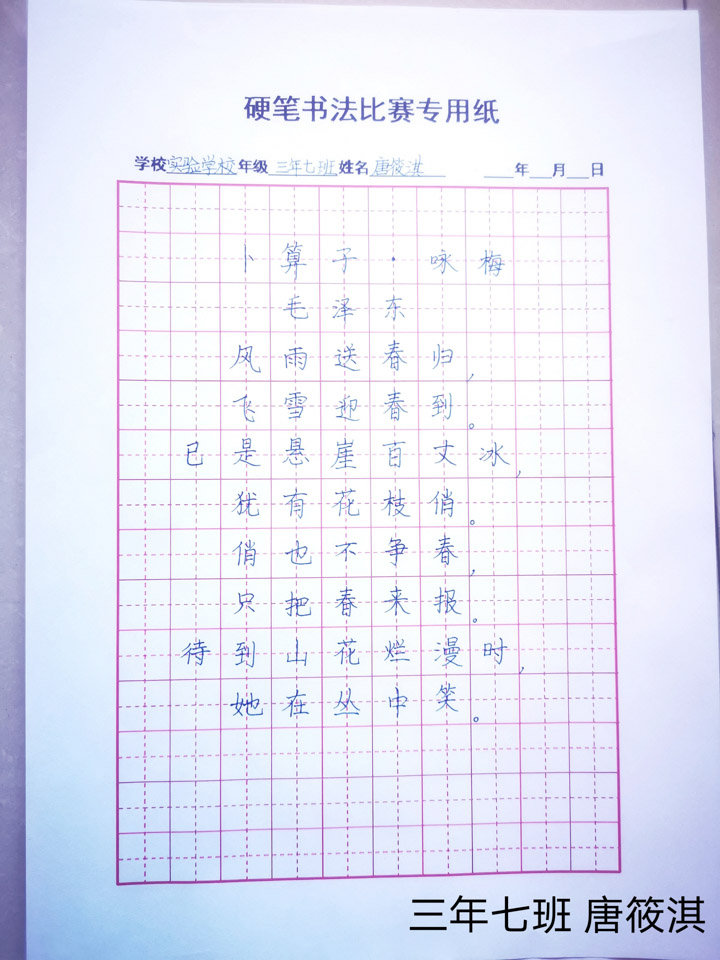 硬笔书法比赛专用纸
学校实验学校年级三年七班姓名唐筱淇 年 月 日
卜算子·咏梅
毛泽东
风雨送春归，
飞雪迎春到。
已是悬崖百丈冰，
犹有花枝俏。
俏也不争春，
只把春来报。
待到山花烂漫时，
她在丛中笑。
三年七班 唐筱淇